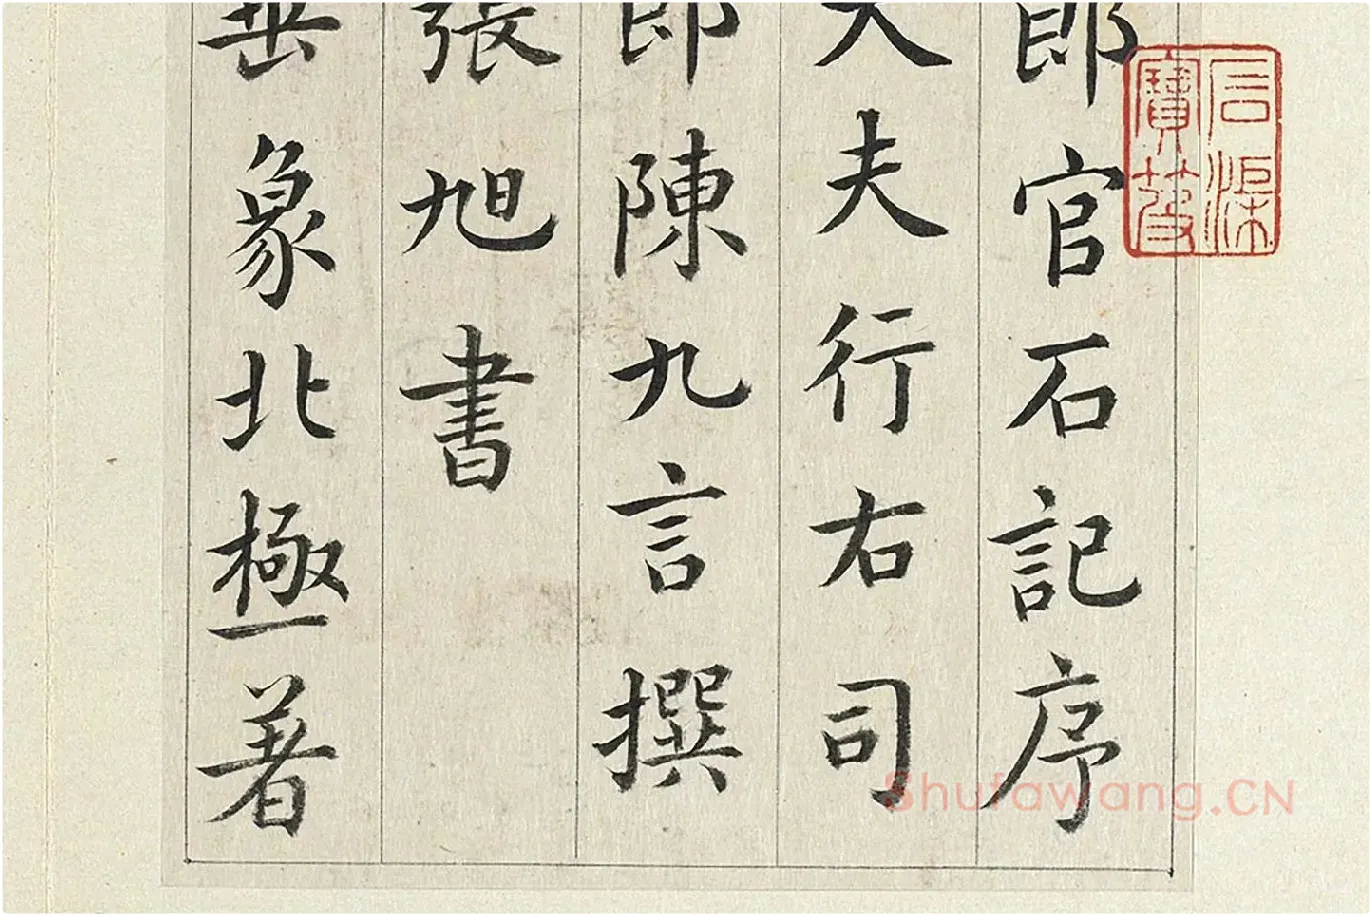 郎官石記序
大夫行右司
郎陳九言撰
張旭書
垂象北極著
Shufawang.CN